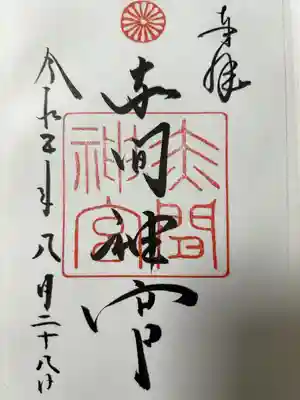 奉拝
赤間神宮
赤間
神宮
令和五年八月二十八日